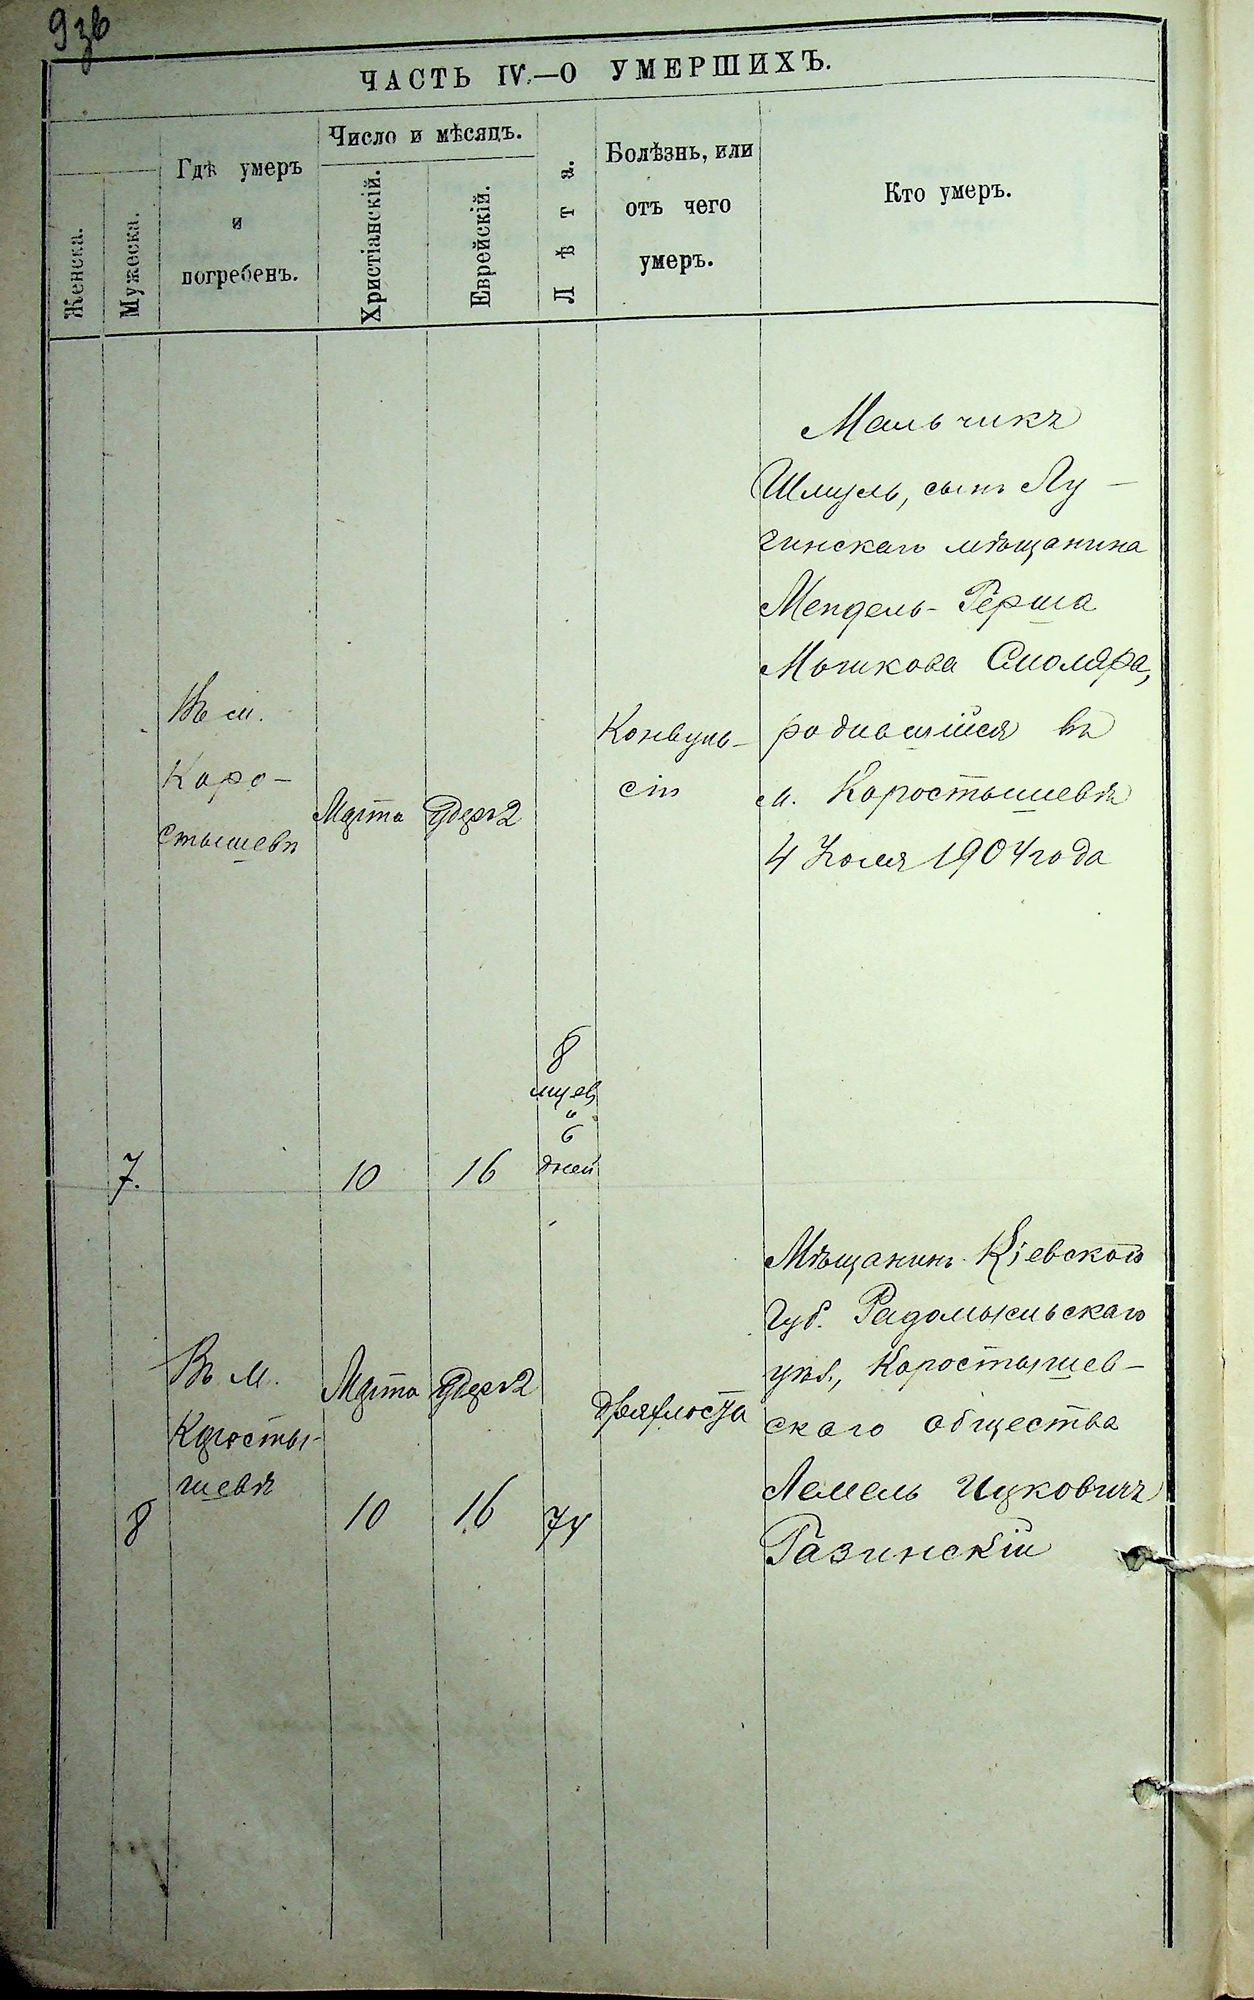 9зв
ЧАСТЬ IV.—О УМЕРШИХЪ.
Женска.
Мужеска.
Гдѣ умеръ
и
погребенъ.
Число и мѣсяцъ.
Христіанскій.
Еврейскій.
Лѣта.
Болѣзнь, или
отъ чего
умеръ.
Кто умеръ.
7.
Въ м.
Коро-
стышевѣ
Марта
10
Адеръ 2
16
8
мцев
и
6
дней
Конвуль-
сіи
Мальчикъ
Шмуль, сынъ Лу-
гинскаго мѣщанина
Мендель-Герша
Мошкова Смоляра,
родившійся въ
м. Коростышевѣ
4 Іюля 1904 года
8
Въ м.
Коросты-
шевѣ
Марта
10
Адеръ 2
16
74
дряхлость
Мѣщанинъ Кіевской
Губ. Радомысльскаго
уѣз., Коростышев-
скаго общества
Лемель Ицковичъ
Разинскій